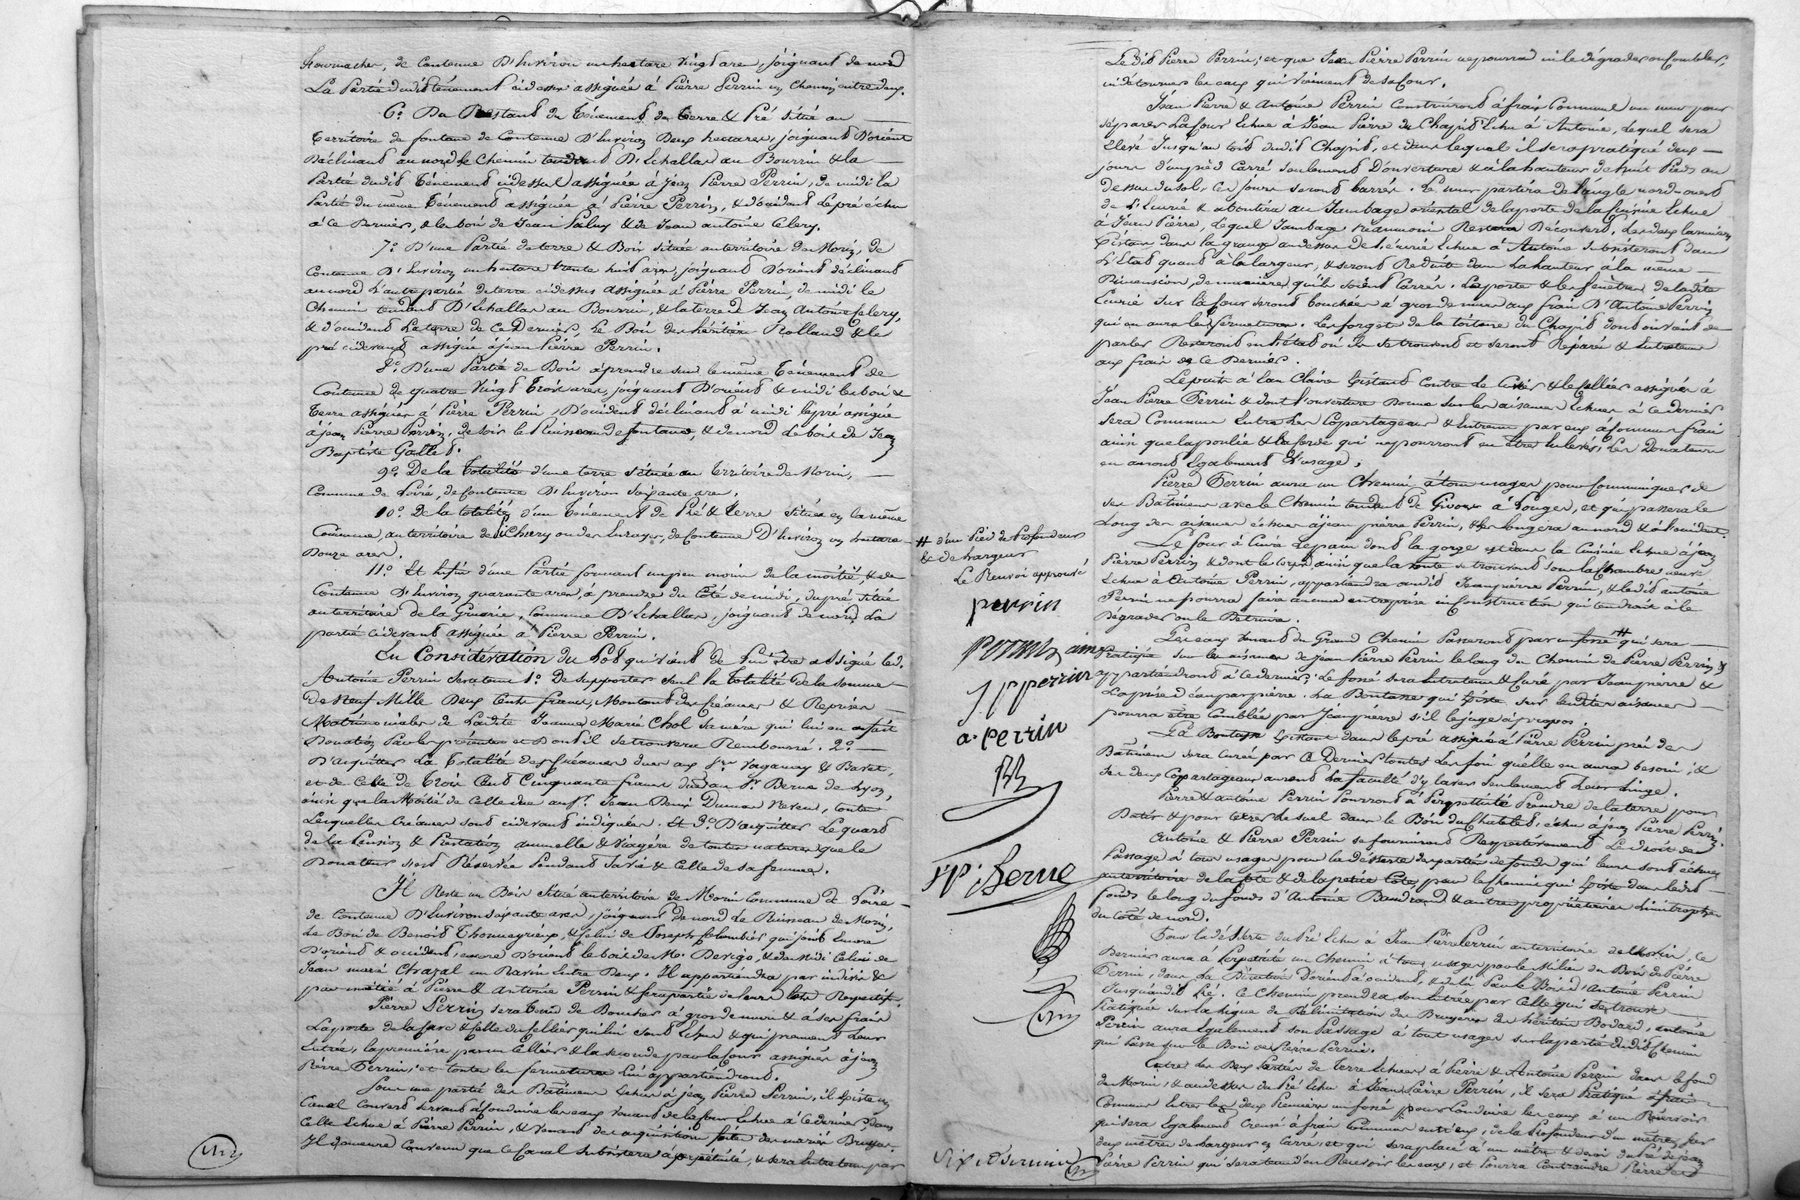 de Contenue D'Environ un hectare Vingt are, joignant de nord
La Partie dudit tènement cidessus assignée à Pierre Perrin un Chemin entre deux.
6.° Du Restant du tènement de terre & Pré Situé au
territoire de fontane de Contenue D'Environ Deux hectares, joignant D'orient
Déclinant au nord le Chemin tendant D'Echallas au Bourrin & la
Partie dudit tènement cidessus assignée à Jean Pierre Perrin, de midi la
Partie du même tènement assignée à Pierre Perrin, & d'occident Le pré échu
à Ce Dernier, & le bois de Jean & de Jean antoine Celery.
7.° D'une Partie de terre & Bois Située au territoire de Morin, de
Contenue D'Environ un hectare trente huit ares, joignant D'orient déclinant
au nord L'autre partie de terre cidessus assignée à Pierre Perrin, de midi le
Chemin tendant D'Echallas au Bourrin, & la terre de Jean Antoine Celery,
& d'occident La terre de Ce Dernier, Le Bois des héritiers Rolland & le
pré cidevant assigné à jean Pierre Perrin.
8.° D'une Partie de Bois à prendre sur le même tènement de
Contenue de quatre Vingt Trois ares, joignant D'orient & midi les bois &
terre assignés à Pierre Perrin, D'occident déclinant à midi le pré assigné
à jean Pierre Perrin, de soir le Ruisseau de fontanes, & de nord Le bois de Jean
Baptiste Gallet.
9.° De La totalité d'une terre située au territoire de Morin,
Commune de Loire, de Contenue D'Environ Soixante ares.
10.° De la totalité d'un tènement de Pré & terre Situé en la même
Commune, au territoire de ou des de Contenue D'Environ un hectare
Douze ares.
11.° Et Enfin d'une Partie formant un peu moins de la moitié, & de
Contenue D'Environ quarante ares, à prendre du Coté de midi, du pré situé
au territoire de la Commune D'Echallas, joignant de nord La
partie cidevant assignée à Pierre Perrin.
En Considération du Lot qui vient de Lui être assigné led.
Antoine Perrin sera tenu 1.° de supporter seul la totalité de la somme
De Neuf Mille Deux Cents francs, Montant des Créances & Reprises
Matrimoniales de Ladite Jeanne Marie Chol sa mère qui lui en a fait
Donation Par les présentes et Dont il se trouvera Remboursé. 2.°
D'acquitter La totalité des Créances dues aux S.rs Vaganay & Baret,
et de Celle de Trois Cent Cinquante francs due au S.r Berne de Lyon,
ainsi que la Moitié de Celle due au S.r Jean Denis Dumas Neveu, toute
Lesquelles Créances sont cidevant indiquées. Et 3.° D'acquitter Le quart
de la Pension & Prestation annuelle & Viagère de toutes natures que le
Donateur s'est Réservée Pendant sa vie & Celle de sa femme.
Il Reste un Bois Situé au territoire de Morin Commune de Loire
de Contenue D'Environ soixante ares, joignant de nord Le Ruisseau de Morin,
Le Bois de Benoit & Celui de Joseph Colombier qui joint Encore
D'orient & occident, encore D'orient le bois de Mr. & de Midi Celui de
Jean marie Chazal un Ravin Entre Deux. Il appartiendra par indivis &
par moitié à Pierre & Antoine Perrin & fera partie de leurs lots Respectifs.
Pierre Perrin sera tenu de Boucher à gros de murs & à ses frais
La porte de la Cave & Celle du Cellier qui lui sont Echus & qui prennent Leur
Entrée, la première par un Cellier & la seconde par la Cour assignés à jean
Pierre Perrin, et toutes les fermetures lui appartiendront.
Sous une partie des Bâtimens Echus à jean Pierre Perrin, il Existe un
Canal Couvert servant à Conduire les eaux venant de la Cour Echue à Ce dernier, dans
Celle Echue à Pierre Perrin, & venant de l'acquisition faite des mariés
Il demeure Convenu que Ce Canal Subsistera à perpétuité, & sera Entretenu par
Le dit Pierre Perrin, et que Jean Pierre Perrin ne pourra ni le dégrader ou Combler,
ni détourner les eaux qui viennent de sa Cour.
Jean Pierre & Antoine Perrin Construiront à frais Communs un mur pour
séparer La Cour Echue à Jean Pierre du Chapit Echu à Antoine, Lequel sera
Elevé Jusqu'au toit dudit Chapit, et dans lequel il sera pratiqué deux
jours d'un pied Carré seulement D'ouverture & à la hauteur de huit Pieds au
dessus du sol, Ces jours seront barrés. Ce mur partira de l'angle nord-ouest
de L'Ecurie & aboutira au Jambage oriental de la porte de la Cuisine Echue
à Jean Pierre, Lequel Jambage néanmoins Restera Découvert. Les deux larmiers
Existans dans la grange au dessus de L'écurie Echue à Antoine subsisteront dans
L'Etat quant à la largeur, & seront Réduits dans la hauteur à la même
Dimension, de manière qu'ils soient Carrés. La porte & les fenêtres de ladite
Ecurie sur la Cour seront bouchées à gros de mur aux frais D'Antoine Perrin
qui en aura les fermetures. Les forgets de la toiture du Chapit dont on vient de
parler Resteront en l'état où ils se trouvent et seront Réparés & Entretenus
aux frais de Ce Dernier.
Le puits à Eau Claire Existant Contre le & le Cellier assignés à
Jean Pierre Perrin & dont l'ouverture Donne sur les aisances Echues à Ce dernier
sera Commun Entre les Copartageans & Entretenu par eux à Communs frais
ainsi que la poulie & la Corde qui ne pourront en être Enlevés, Les Donateurs
en auront Egalement L'usage.
Pierre Perrin aura un Chemin à tous usages pour Communiquer de
ses Bâtimens avec le Chemin tendant de Givors à Longes, et qui passera le
Long des aisances échues à jean pierre Perrin, & les longera au nord & à l'occident.
Le four à Cuire Le pain dont la gorge est dans la Cuisine Echue à jean
Pierre Perrin & dont le Corps ainsi que la voute se trouvent sous la Chambre neuve
Echue à Antoine Perrin, appartiendra audit Jean pierre Perrin, & ledit antoine
Perrin ne pourra faire aucune entreprise ni Construction qui tendrait à le
Dégrader ou le Détruire.
Les eaux venant du Grand Chemin Passeront par un fossé # qui sera
Pratiqué sur les aisances de Jean Pierre Perrin le long du Chemin de Pierre Perrin, &
appartiendront à Ce dernier; Le fossé sera Entretenu & Curé par Jean pierre &
La prise d'eau par pierre. La Boutasse qui Existe sur lesdites aisances
pourra être Comblée par Jean pierre s'il le juge à propos.
La Boutasse Existant dans le pré assigné à Pierre Perrin près des
Bâtimens sera Curée par Ce Dernier toutes Les fois qu'elle en aura besoin; &
ses deux Copartageans auront la faculté d'y laver seulement Leur Linge.
Pierre & antoine Perrin Pourront à Perpétuité Prendre de la terre pour
Batir & pour tirer de suel dans le Bois du Chatelet, échu à jean Pierre Perrin.
Antoine & Pierre Perrin se fourniront Respectivement Le droit de
Passage à tous usages pour la désserte des parties de fonds qui leurs sont échues
au territoire de la & de la petite Cote, par le Chemin qui Existe dans lesdits
fonds le long du fonds d'Antoine Baudrand & autres propriétaires limitrophes
du Coté de nord.
Pour la déserte du Pré Echu à Jean Pierre Perrin au territoire de Morin, Ce
Dernier aura à Perpétuité un Chemin à tous usages par le Milieu du Bois de Pierre
Perrin, dans sa Direction D'orient à occident, & de là Par le Bois d'Antoine Perrin
Jusqu'audit Pré. Ce Chemin prendra son Entrée par Celle qui se trouve
Pratiquée sur la ligne de Délimitation des Bruyères des héritiers Bodard, antoine
Perrin aura Egalement son Passage à tout usages sur la partie dudit Chemin
qui Passe sur le Bois de Pierre Perrin.
Entre les Deux Parties de Terre Echues à Pierre & Antoine Perrin dans le fond
de Morin, & au dessus du Pré Echu à Jean Pierre Perrin, il sera Pratiqué à frais
Communs Entre les deux Premiers un fossé pour Conduire les eaux à un Réservoir
qui sera Egalement Creusé à frais Communs entr'eux, de la Profondeur d'un mètre, sur
deux mètres de Largeur en Carré, et qui sera placé à un mètre & demi du Pré de jean
Pierre Perrin qui sera tenu d'en Recevoir les eaux, et Pourra Contraindre Pierre &
# d'un Pied de Profondeur
& de Largeur
Le Renvoi approuvé
perrin
perrin ainé
J P perrin
a. perrin
Berne
Six & Dernier